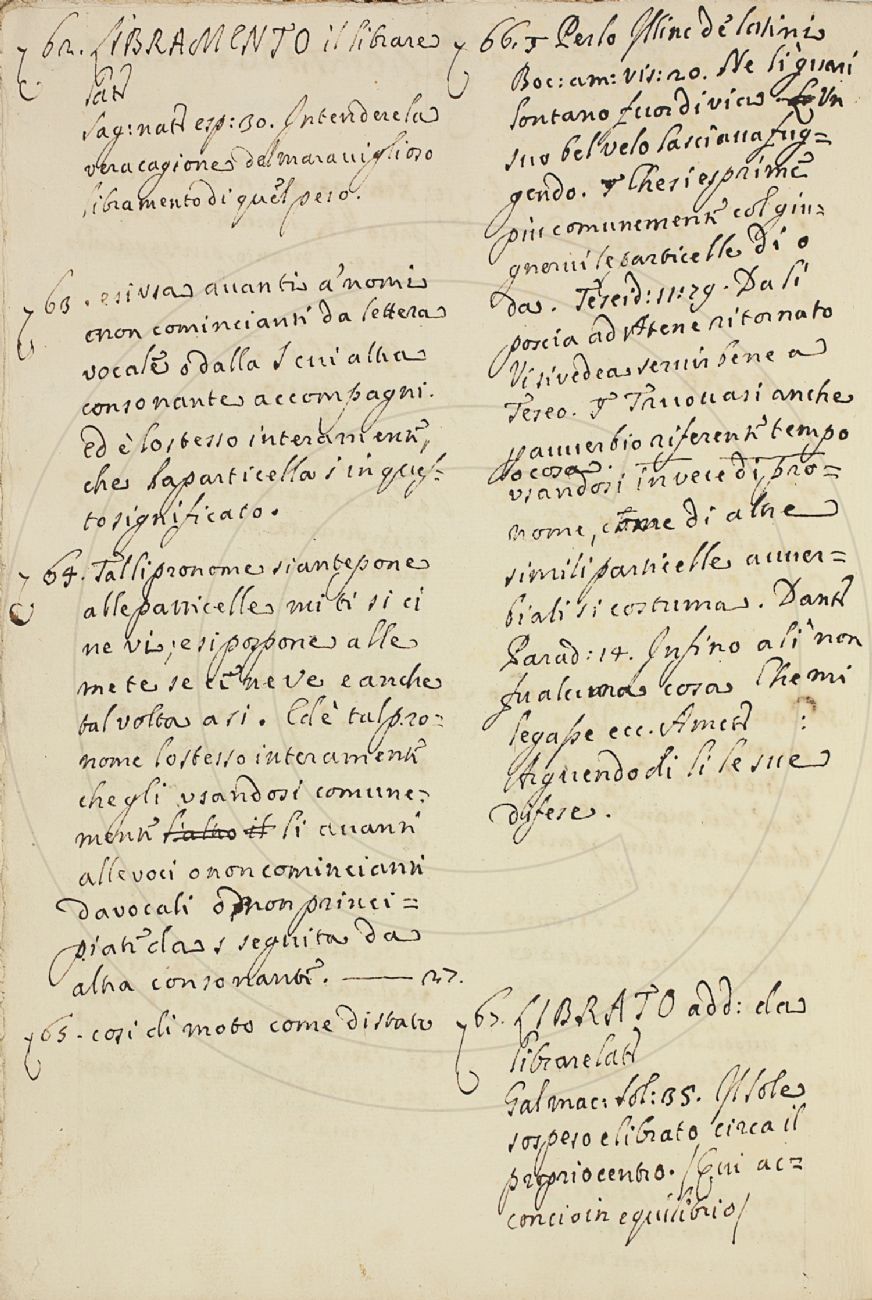 62. LIBRAMENTO il librare
lat̄
Sag: nat̄ esp: 30. Intendere la
vera cagione del maraviglioso
libramento di quel peso.
63. e si usa avanti a' nomi
o non comincianti da lettera
vocale o dalla S cui altra
consonante accompagni.
Ed è lo stesso interamente,
che la particella i in ques-
to significato.
64. Tal li pronome si antepone
alle particelle mi ti si ci
ne vi; e si pospone alle
me te se ce ne ve e anche
tal volta a si. Ed è tal pro=
nome lo stesso interamente
che gli usandosi comune=
mente li avanti
alle voci o non comincianti
da vocali o non princi=
piate da s seguita da
altra consonante. —— 27.
65. così di moto come di stato
66. Per lo Illinc de latini
Boc: am: vis: 20. Ne lì guari
lontano fuor di via Un
suo bel velo lasciava fug=
gendo. Che si esprime
piu comunemente col giu=
gnervi le particelle di o
da. Teseid: 11: 29. Da lì
poscia ad Atene ritornato
Vi si vedea servir bene a
Teseo. Truovasi anche
avverbio riferente tempo
o cosa
usandosi in vece di pro=
nome, come di altre
simili particelle avver=
biali si costuma. Dant̄
Parad: 14. Infino a lì non
fu alcuna cosa Che mi
legasse ecc. Amet̄ :
Aguendo di lì le sue
difese.
67. LIBRATO add: da
librare lat̄
Gal mac: sol: 35. Il sole
sospeso e librato circa il
proprio centro. /Qui ac=
concio in equilibrio/